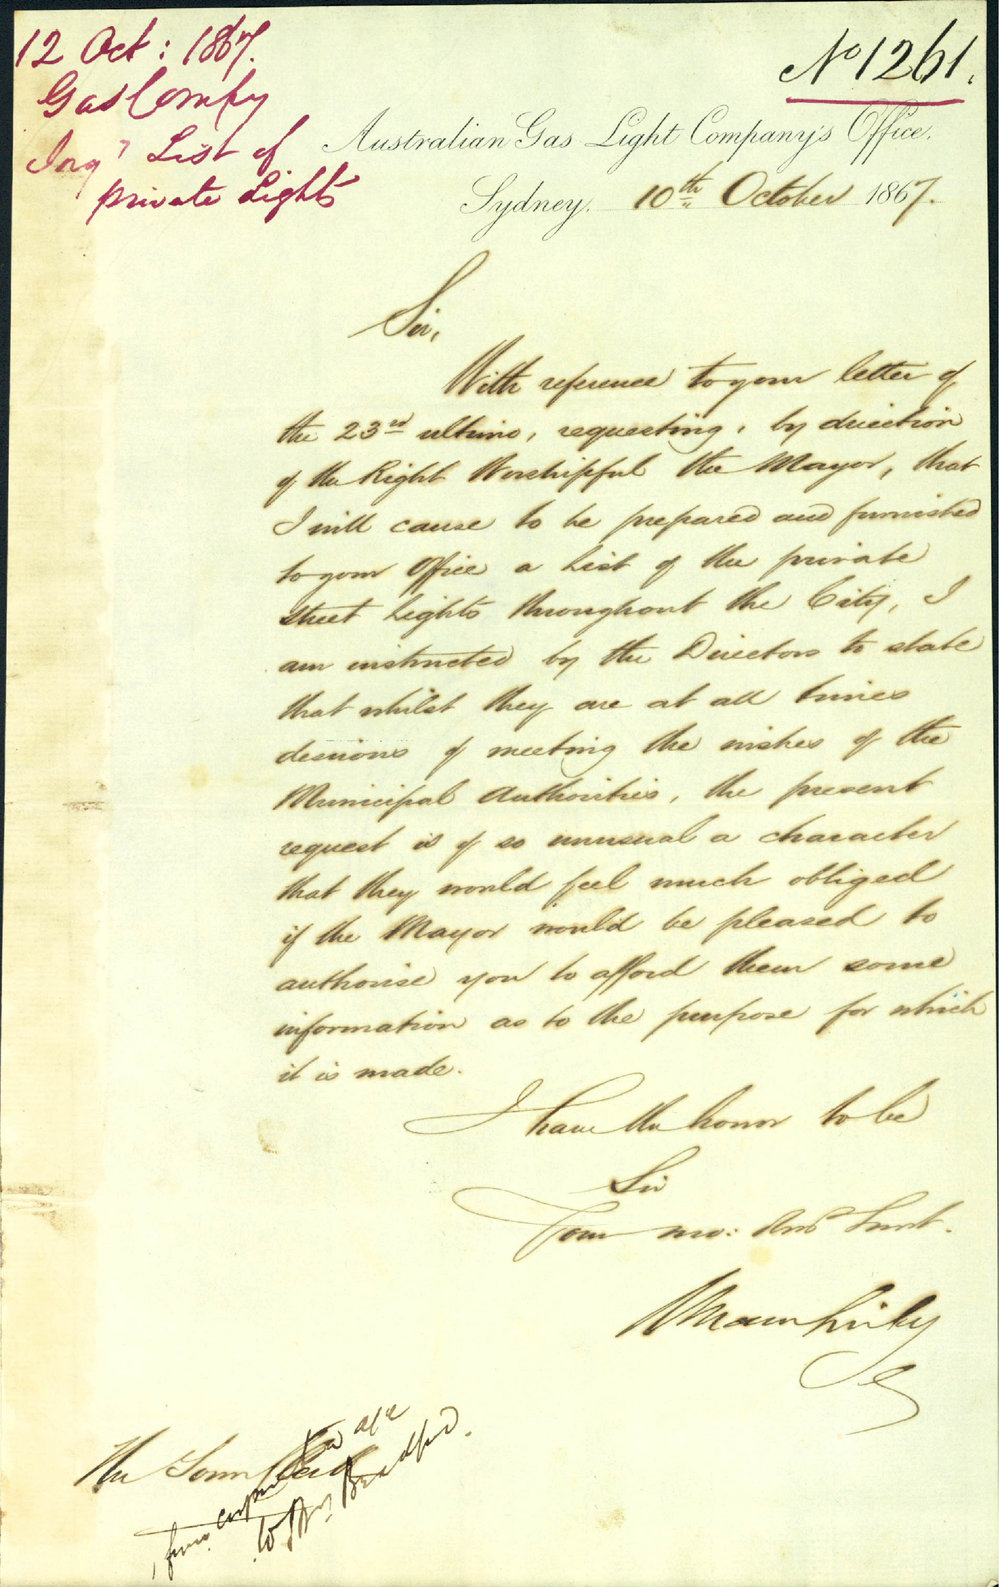 12 Oct : 1867.
Gas Compy
Inq^y List of
private Lights
No 1261.
Australian Gas Light Company's Office.
Sydney. 10th October 1867.
Sir,
With reference to your letter of
the 23rd ultimo, requesting, by direction
of the Right Worshipful the Mayor, that
I will cause to be prepared and furnished
to your Office a List of the private
street Lights throughout the City, I
am instructed by the Directors to state
that whilst they are at all times
desirous of meeting the wishes of the
Municipal Authorities, the present
request is of so unusual a character
that they would feel much obliged
if the Mayor would be pleased to
authorise you to afford them some
information as to the purpose for which
it is made.
I have the honor to be
Sir
Your mo: Obt Servt.
The Town Clerk
to Mr Bradford.